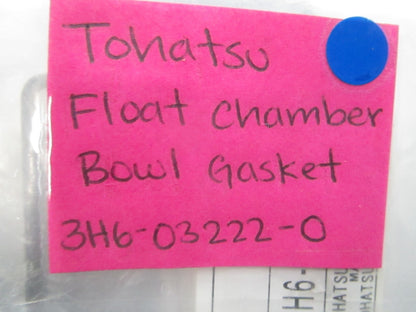 Tohatsu
Float Chamber
Bowl Gasket
3H6-03222-0
H6-
HATSU
MA
OHATSU